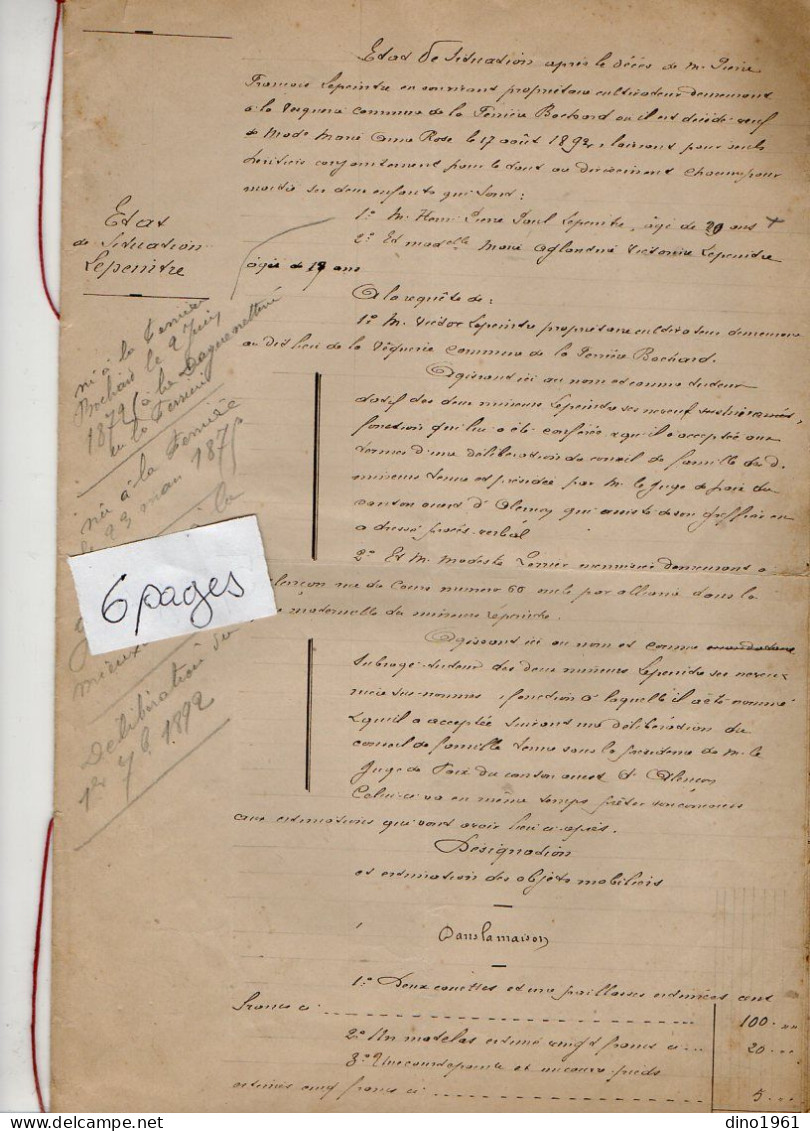 Etat de Situation après le décès de M. Pierre
François Lepeintre en son vivant propriétaire cultivateur demeurant
à la commune de la Ferrière Bochard où il est décédé veuf
de Made Marie Anne Rose le 17 août 1892, laissant pour seuls
héritiers conjointement pour le tout ou divisément chacun pour
moitié ses deux enfants qui sont :
1º M. Henri Pierre Paul Lepeintre, âgé de 20 ans +
2º Et madelle Marie Victorine Lepeintre
âgée de 17 ans
Etat
de Situation
Lepeintre
A la requête de :
1º M. Victor Lepeintre propriétaire cultivateur demeurant
au dit lieu de la commune de la Ferrière Bochard.
Agissant ici au nom et comme tuteur
datif des deux mineurs Lepeintre ses neveux sus nommés,
fonction qui lui a été conférée & qu'il a acceptée aux
termes d'une délibération du conseil de famille du d.
mineurs tenue et présidée par M. le Juge de paix du
canton ouest d'Alençon qui assisté de son greffier en
a dressé procès-verbal
2º Et M. Modeste demeurant à
Alençon rue du Cours numéro 60 par alliance dans la
maternelle du mineurs Lepeintre.
Agissant ici au nom et comme
subrogé-tuteur des deux mineurs Lepeintre ses neveux
sus-nommés, fonction à laquelle il a été nommé
& qu'il a acceptée suivant une délibération du
conseil de famille tenue sous la présidence de M. le
Juge de Paix du canton ouest d'Alençon
Celui-ci va en même temps prêter son concours
aux estimations qui vont avoir lieu ci-après.
né à la Ferrière
Bochard le 2 Juin
1872
née à la Ferrière
le 23 mars 1875
6 pages
Délibération du
1er 7b. 1892
Désignation
et estimation des objets mobiliers
Dans la maison
1º Deux couettes et une paillasse estimées cent
francs ci : 100 . "
2º Un matelas estimé vingt francs ci ... 20 . "
3º Une courtepointe et un couvre-pieds
estimés cinq francs ci : 5 . "
dino1961